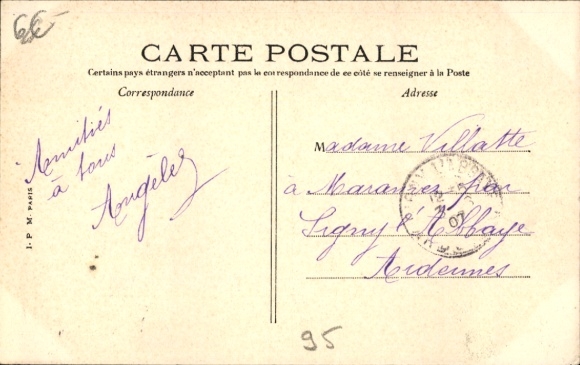 CARTE POSTALE
Certains pays étrangers n'acceptant pas la correspondance de ce côté se renseigner à la Poste
Correspondance
Adresse
Amitiés
à tous
Angèle
Madame Villatte
à Maranwez par
Signy l'Abbaye
Ardennes
I·P M·PARIS
07
95